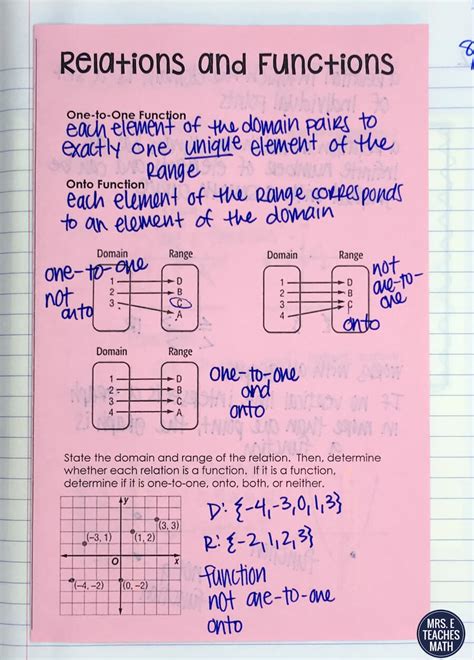 Relations and Functions
One-to-One Function
each element of the domain pairs to
exactly one unique element of the
Range
Onto Function
each element of the Range corresponds
to an element of the domain
Domain Range
one-to-one
not
onto
1 D
2 B
3 C
A
Domain Range
not
one-to-
one
onto
1 D
2 B
3 C
4
Domain Range
1 D
2 B
3 C
4 A
one-to-one
and
onto
State the domain and range of the relation. Then, determine
whether each relation is a function. If it is a function,
determine if it is one-to-one, onto, both, or neither.
y
(3, 3)
(-3, 1) (1, 2)
O x
(-4, -2) (0, -2)
D: {-4,-3,0,1,3}
R: {-2,1,2,3}
function
not one-to-one
onto
MRS. E
TEACHES
MATH